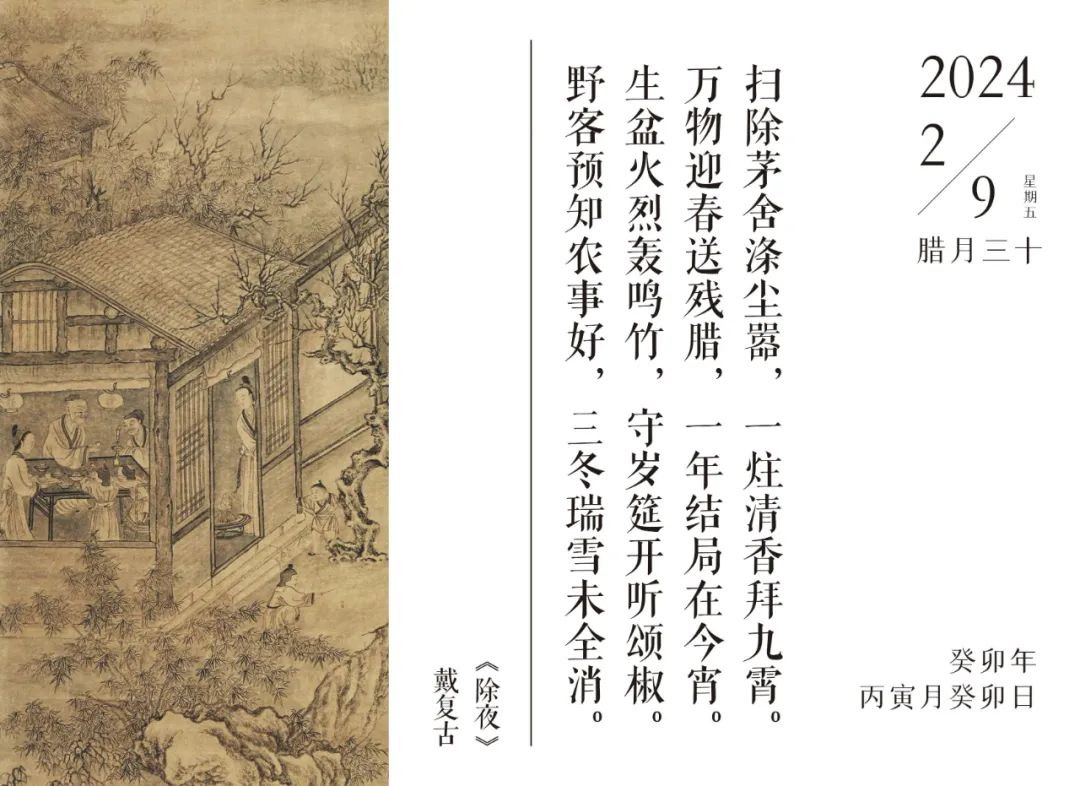 2024
2/9
星期五
腊月三十
扫除茅舍涤尘嚣，一炷清香拜九霄。
万物迎春送残腊，一年结局在今宵。
生盆火烈轰鸣竹，守岁筵开听颂椒。
野客预知农事好，三冬瑞雪未全消。
《除夜》
戴复古
癸卯年
丙寅月癸卯日